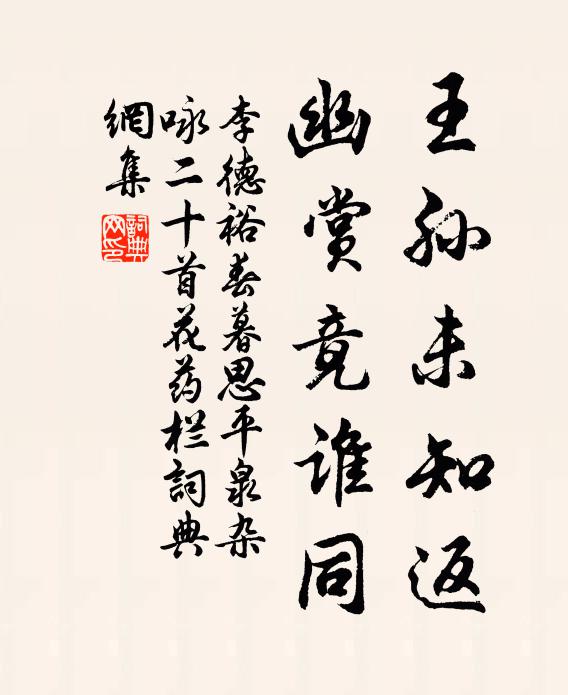 王孙未知返
幽赏竟谁同
李德裕春暮思平泉杂
咏二十首花药栏詞典
網集
詞典
网印